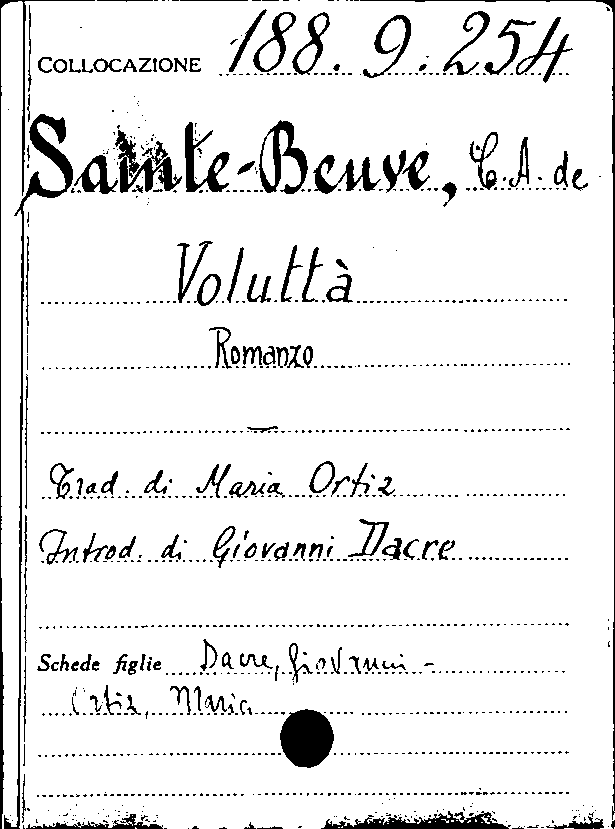 COLLOCAZIONE 188.9.254
Sainte-Beuve, C.A. de
Voluttà
Romanzo
Trad. di Maria Ortiz
Introd. di Giovanni Dacre
Schede figlie Dacre, Giovanni -
Ortiz, Maria